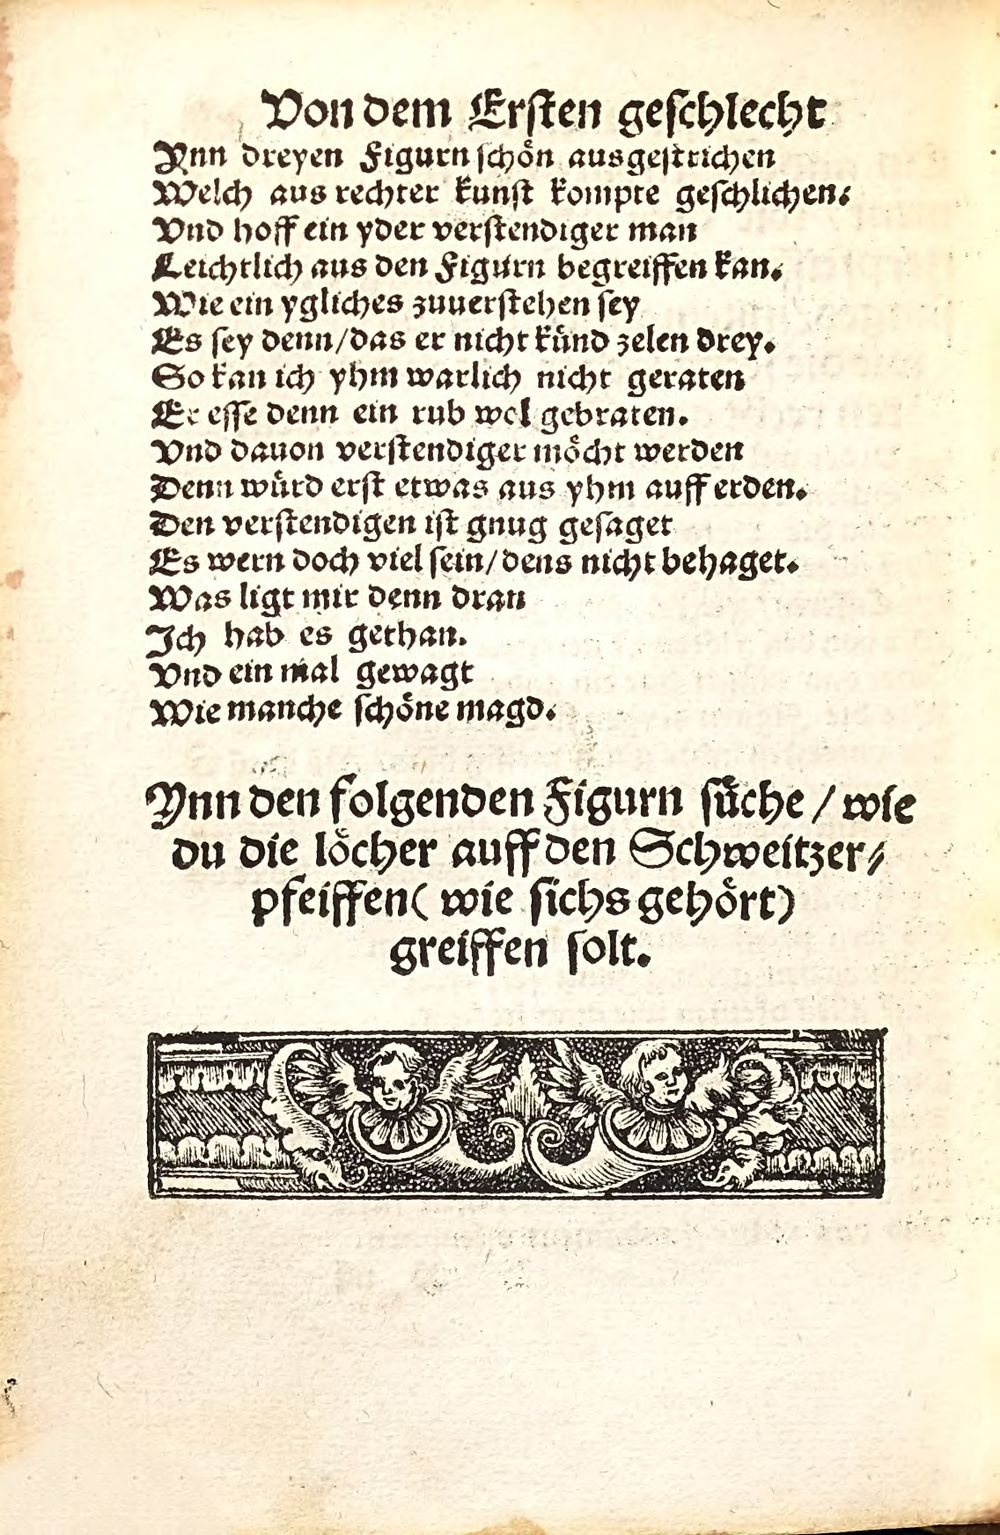 Von dem Ersten geschlecht
Ynn dreyen Figurn schön ausgestrichen
Welch aus rechter kunst kompte geschlichen.
Vnd hoff ein yder verstendiger man
Leichtlich aus den Figurn begreiffen kan.
Wie ein ygliches zuuerstehen sey
Es sey denn/das er nicht künd zelen drey.
So kan ich yhm warlich nicht geraten
Er esse denn ein rub wol gebraten.
Vnd dauon verstendiger möcht werden
Denn würd erst etwas aus yhm auff erden.
Den verstendigen ist gnug gesaget
Es wern doch viel sein/dens nicht behaget.
Was ligt mir denn dran
Ich hab es gethan.
Vnd ein mal gewagt
Wie manche schöne magd.
Ynn den folgenden Figurn süche / wie
du die löcher auff den Schweitzer⸗
pfeiffen( wie sichs gehört)
greiffen solt.